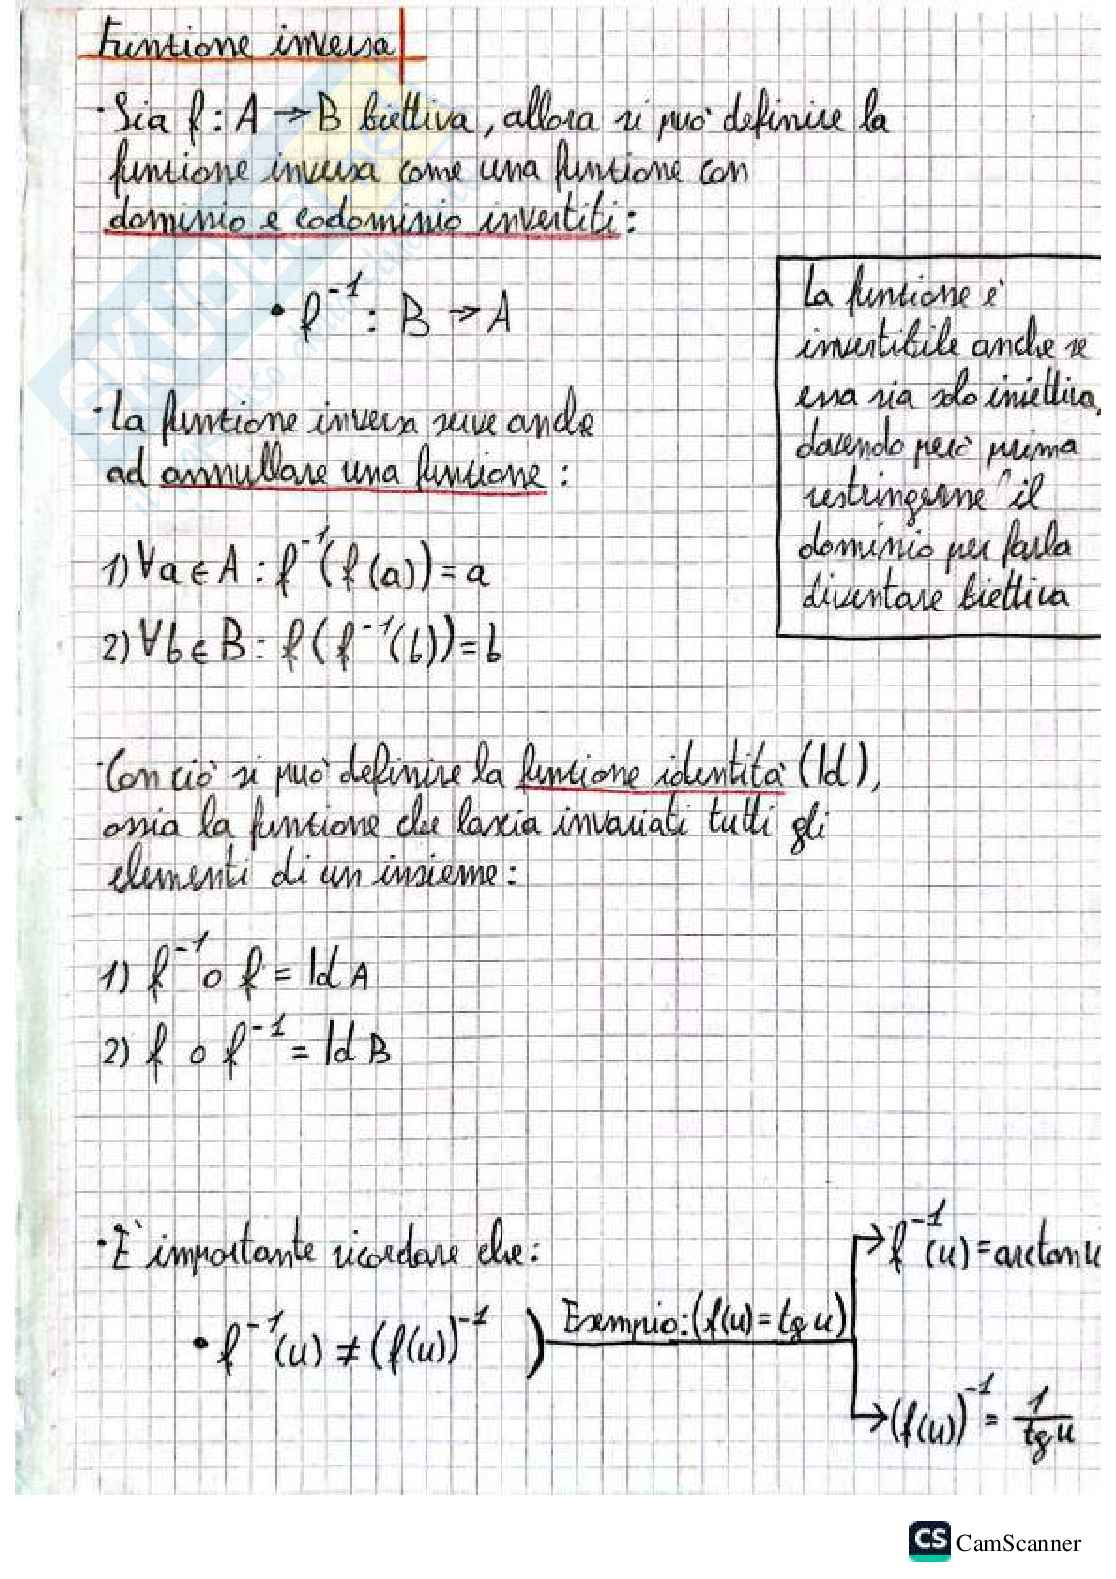 Funzione inversa
·Sia f: A → B biettiva, allora si può definire la
funzione inversa come una funzione con
dominio e codominio invertiti:
• f⁻¹: B → A
La funzione è
invertibile anche se
essa sia solo iniettiva,
dovendo però prima
restringerne il
dominio per farla
diventare biettiva
·La funzione inversa serve anche
ad annullare una funzione:
1) ∀a ∈ A : f⁻¹(f(a)) = a
2) ∀b ∈ B : f(f⁻¹(b)) = b
·Con ciò si può definire la funzione identità (Id),
ossia la funzione che lascia invariati tutti gli
elementi di un insieme:
1) f⁻¹ o f = Id A
2) f o f⁻¹ = Id B
·È importante ricordare che:
• f⁻¹(x) ≠ (f(x))⁻¹ )
Esempio: (f(x) = tg x)
→ f⁻¹(x) = arctan x
→ (f(x))⁻¹ = 1/tg x
CS CamScanner